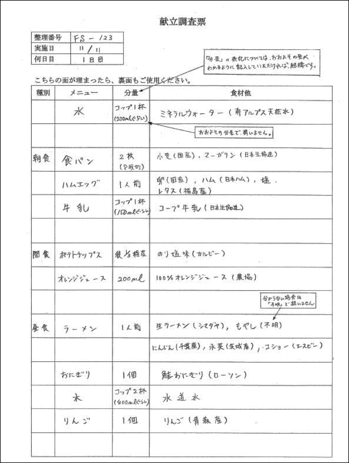 献立調査票
整理番号 FS-123
実施日 11/11
何日目 1日目
「分量」の表記については、おおよその量が
わかるように記入していただければ、結構です。
こちらの面が埋まったら、裏面もご使用ください。
種別 メニュー 分量 食材他
水 コップ1杯 (200mlぐらい) ミネラルウォーター (南アルプス天然水)
おおよその分量で構いません。
朝食 食パン 2枚 小麦(国産)、マーガリン
ハムエッグ 1人前 卵(国産)、ハム(日本ハム)、塩、
レタス(福島産)
牛乳 コップ1杯 コープ牛乳
間食 ポテトチップス のり塩味(カルビー)
オレンジジュース 200ml 100%オレンジジュース(農協)
分からない場合は
「不明」で構いません
昼食 ラーメン 1人前 生ラーメン(シマダヤ)、もやし(不明)
にんじん(千葉産)、水菜(茨城産)、コショー(エスビー)
おにぎり 1個 鮭おにぎり(ローソン)
水 コップ2杯 (400mlぐらい) 水道水
りんご 1個 りんご(青森産)